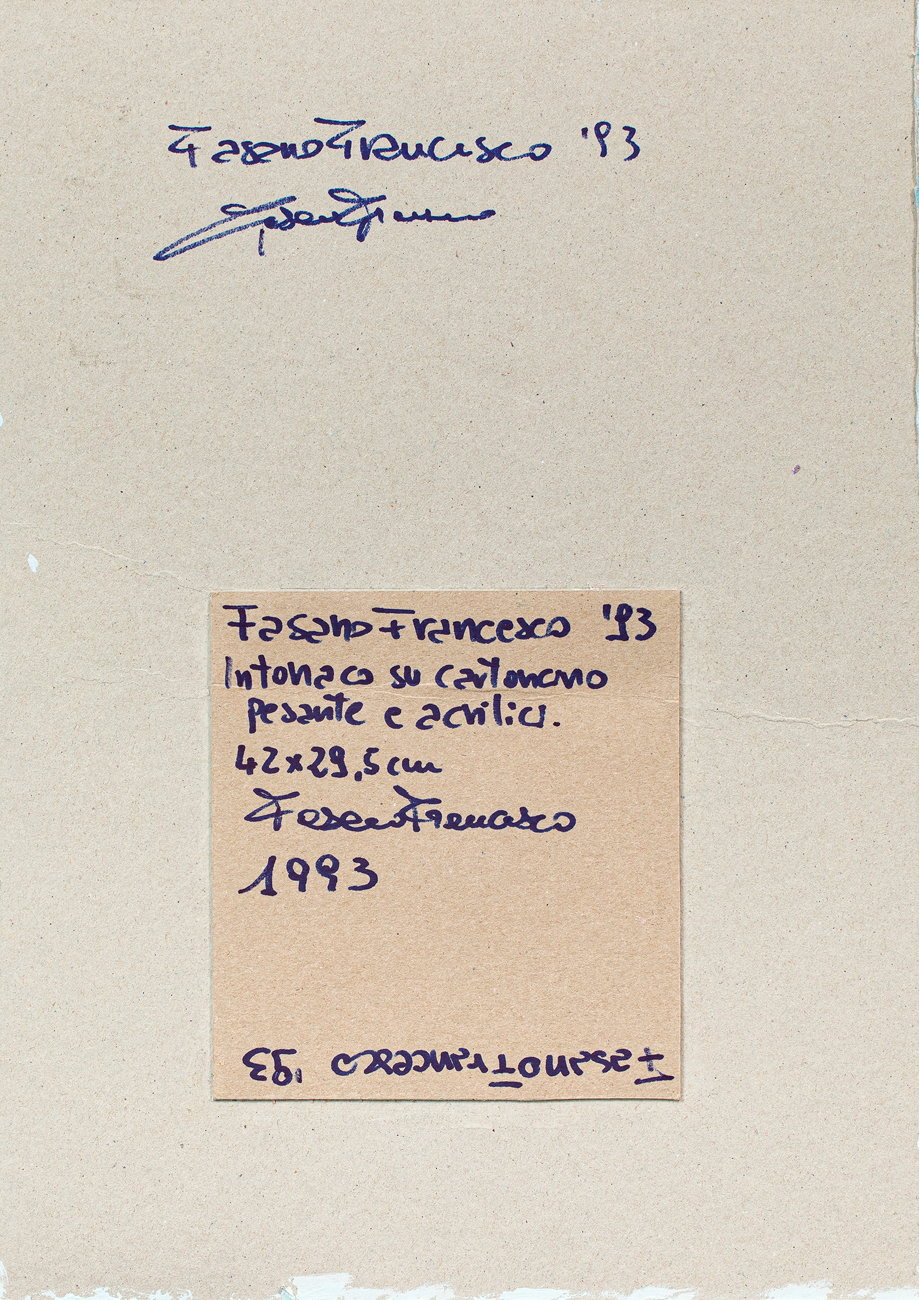 Fasano Francesco '93
Fasano Francesco
Fasano Francesco '93
Intonaco su cartoncino
pesante e acrilici.
42x29,5cm
Fasano Francesco
1993
Fasano Francesco '93